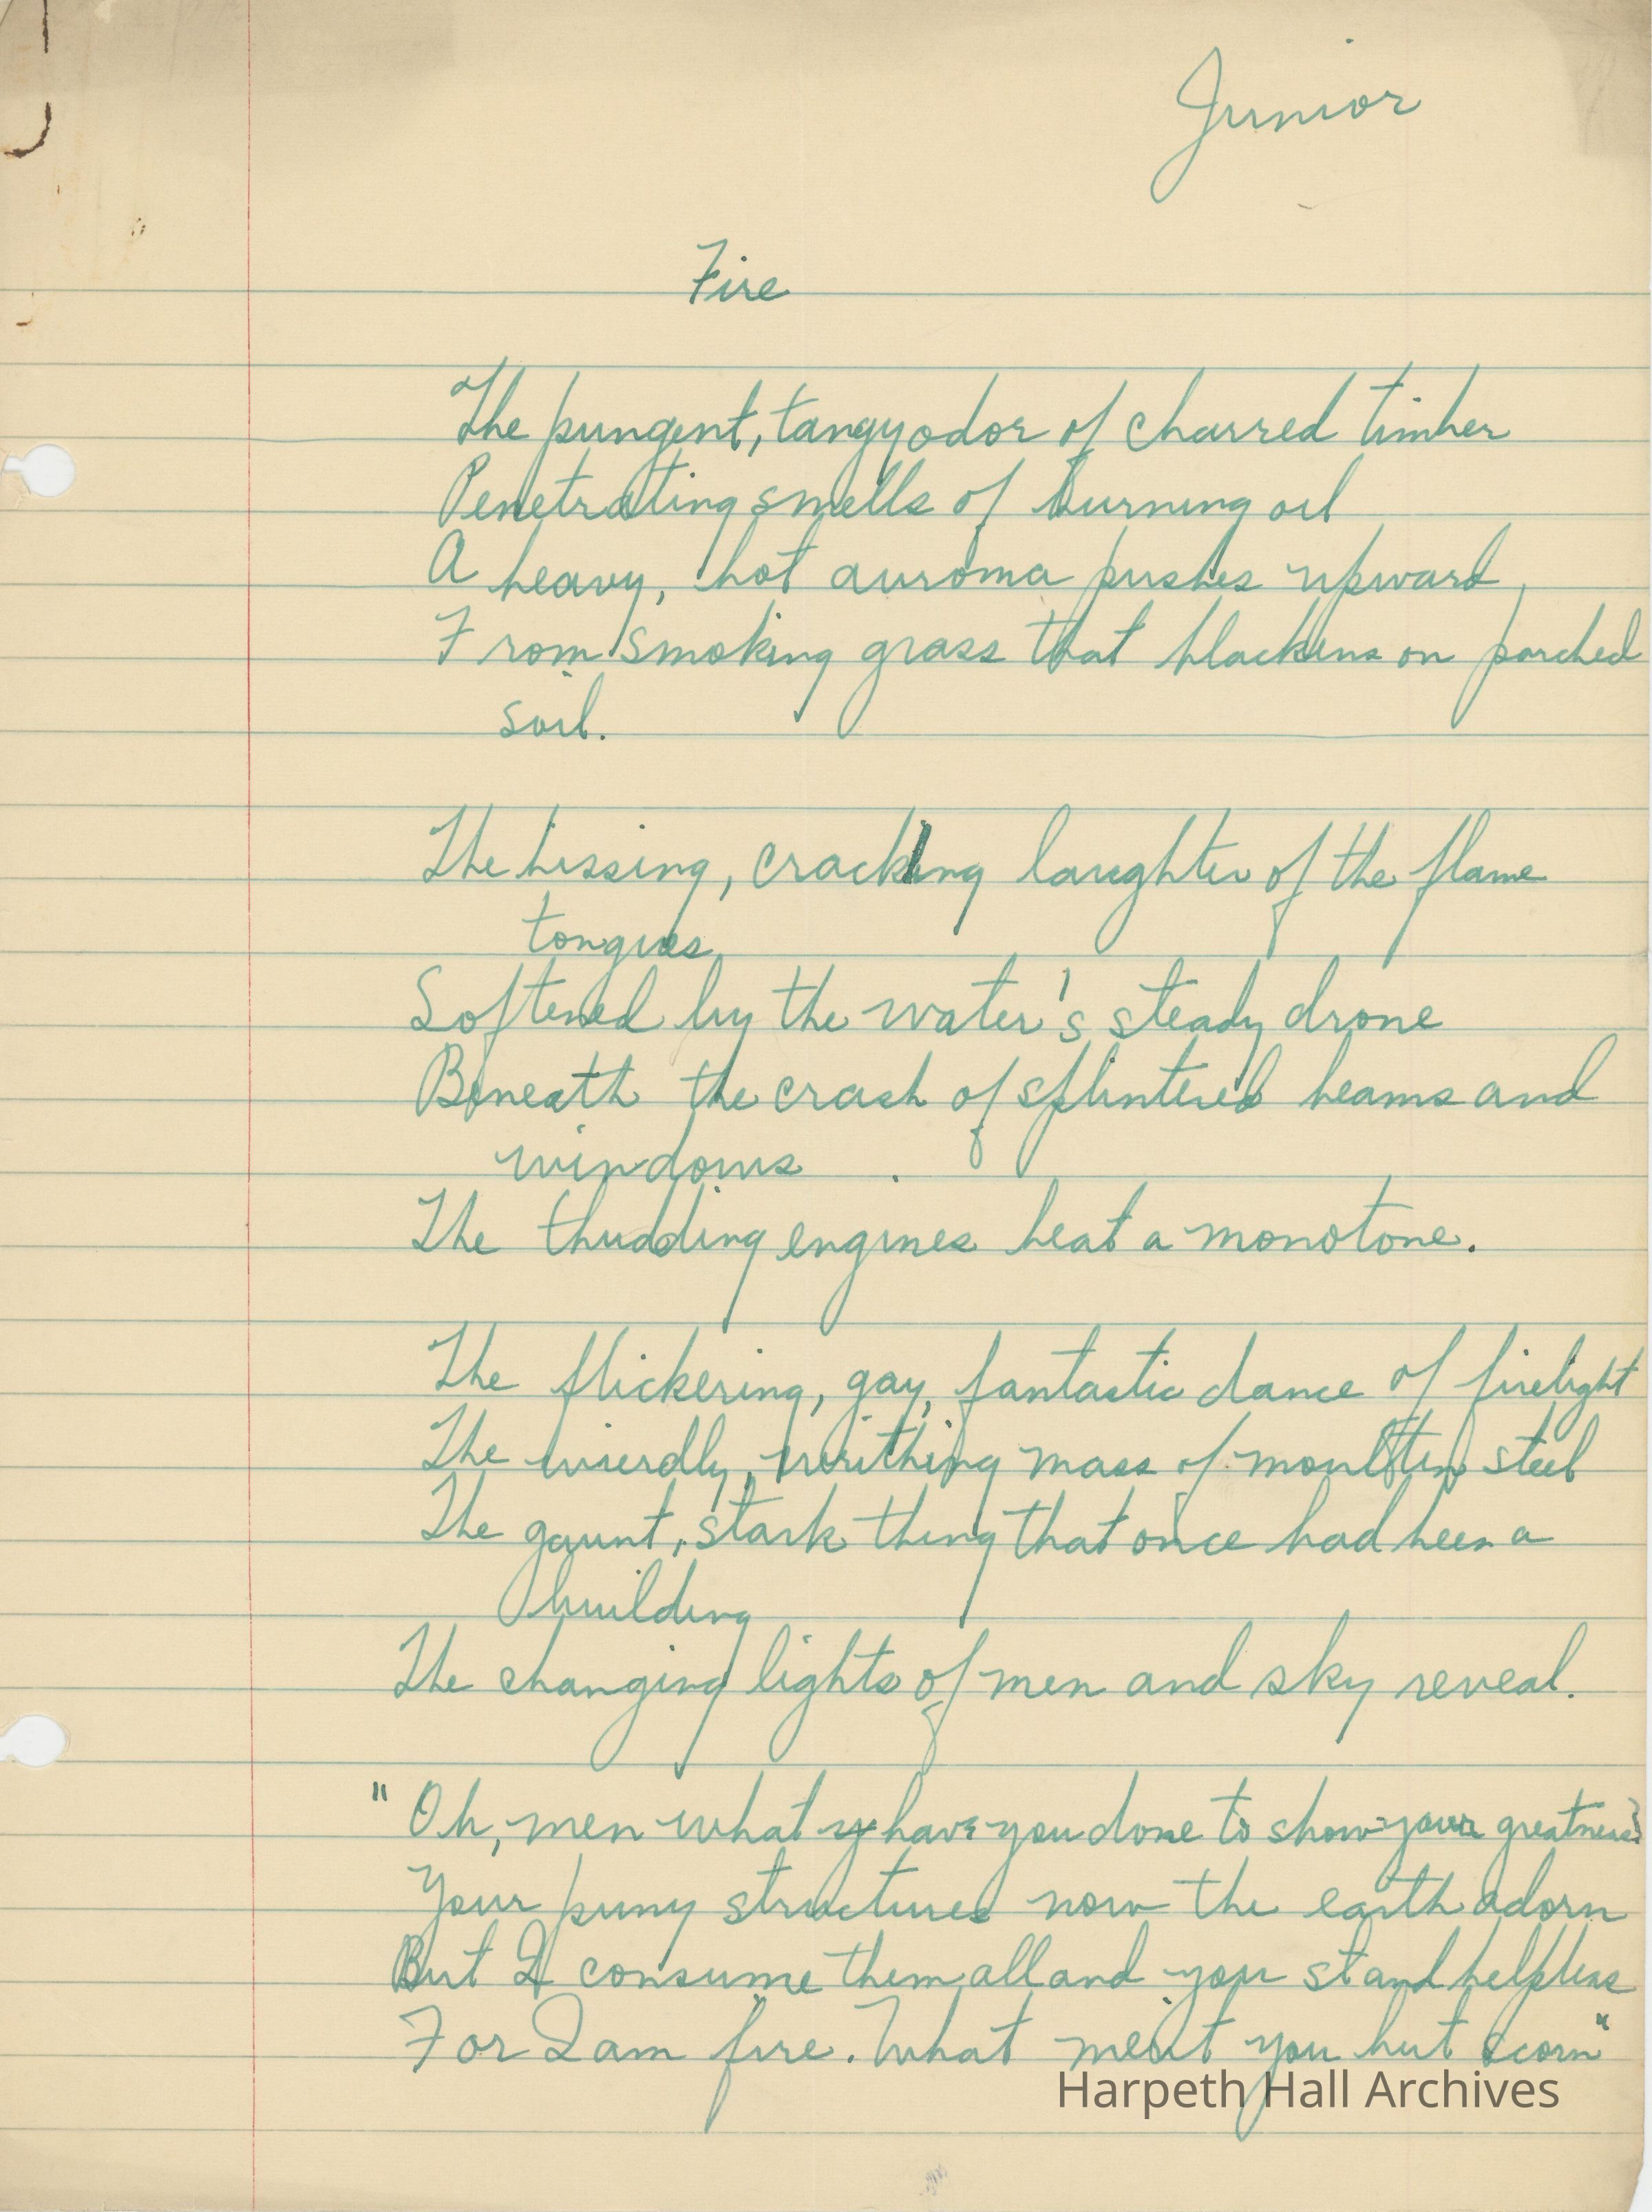 Junior
Fire
The pungent, tangy odor of charred timber
Penetrating smells of burning oil
A heavy, hot auroma pushes upward,
From smoking grass that blackens on parched
soil.
The hissing, crackling laughter of the flame
tongues
Softened by the water's steady drone
Beneath the crash of splintered beams and
windows.
The thudding engines beat a monotone.
The flickering, gay, fantastic dance of firelight
The wierdly, writhing mass of moulten steel
The gaunt, stark thing that once had been a
building
The changing lights of men and sky reveal.
"Oh, men what have you done to show your greatness
Your puny structures now the earth adorn
But I consume them all and you stand helpless
For I am fire. What merit you but scorn"
Harpeth Hall Archives